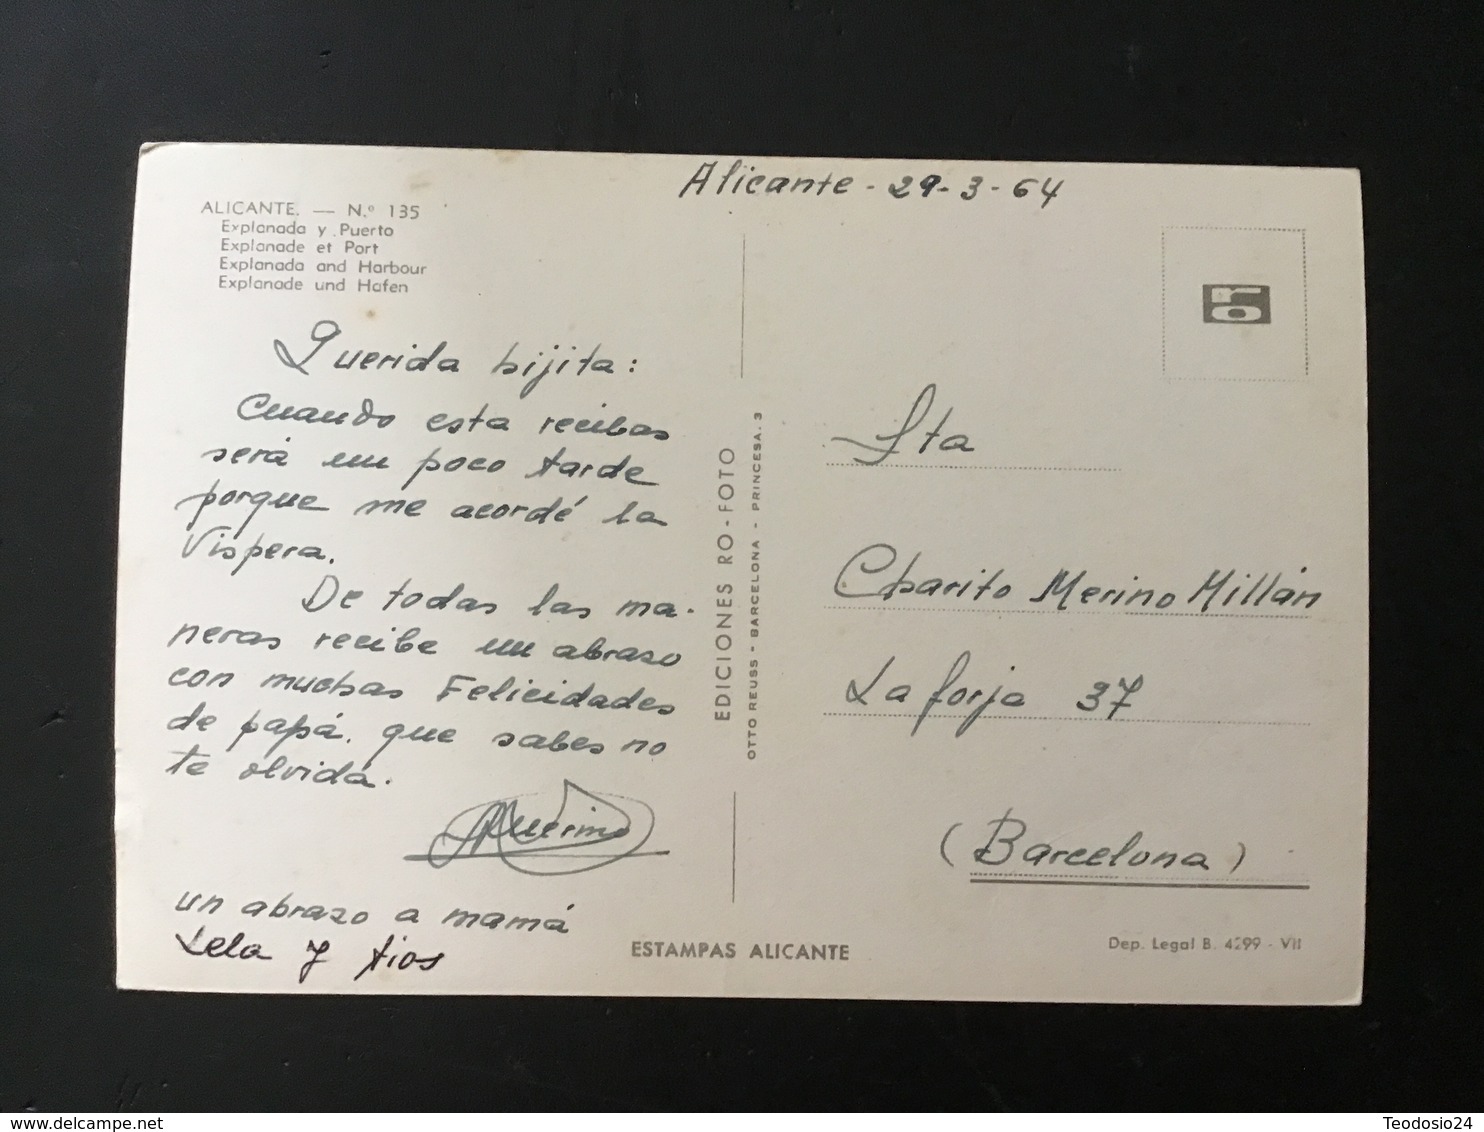 Alicante - 29-3-64
ALICANTE. — N.º 135
Explanada y Puerto
Explanade et Port
Explanada and Harbour
Explanade und Hafen
Querida hijita:
Cuando esta recibas
será un poco tarde
porque me acordé la
Vispera.
De todas las ma-
neras recibe un abraso
con muchas Felicidades
de papá, que sabes no
te olvida.
Merino
un abrazo a mamá
Lela y tios
EDICIONES RO-FOTO
OTTO REUSS - BARCELONA - PRINCESA. 3
ro
Sta
Charito Merino Millán
La forja 37
(Barcelona)
ESTAMPAS ALICANTE
Dep. Legal B. 4299 - VII
delcampe.net
Teodosio24